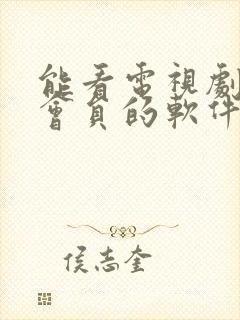 能看電視劇
會員的軟件
侯志奎